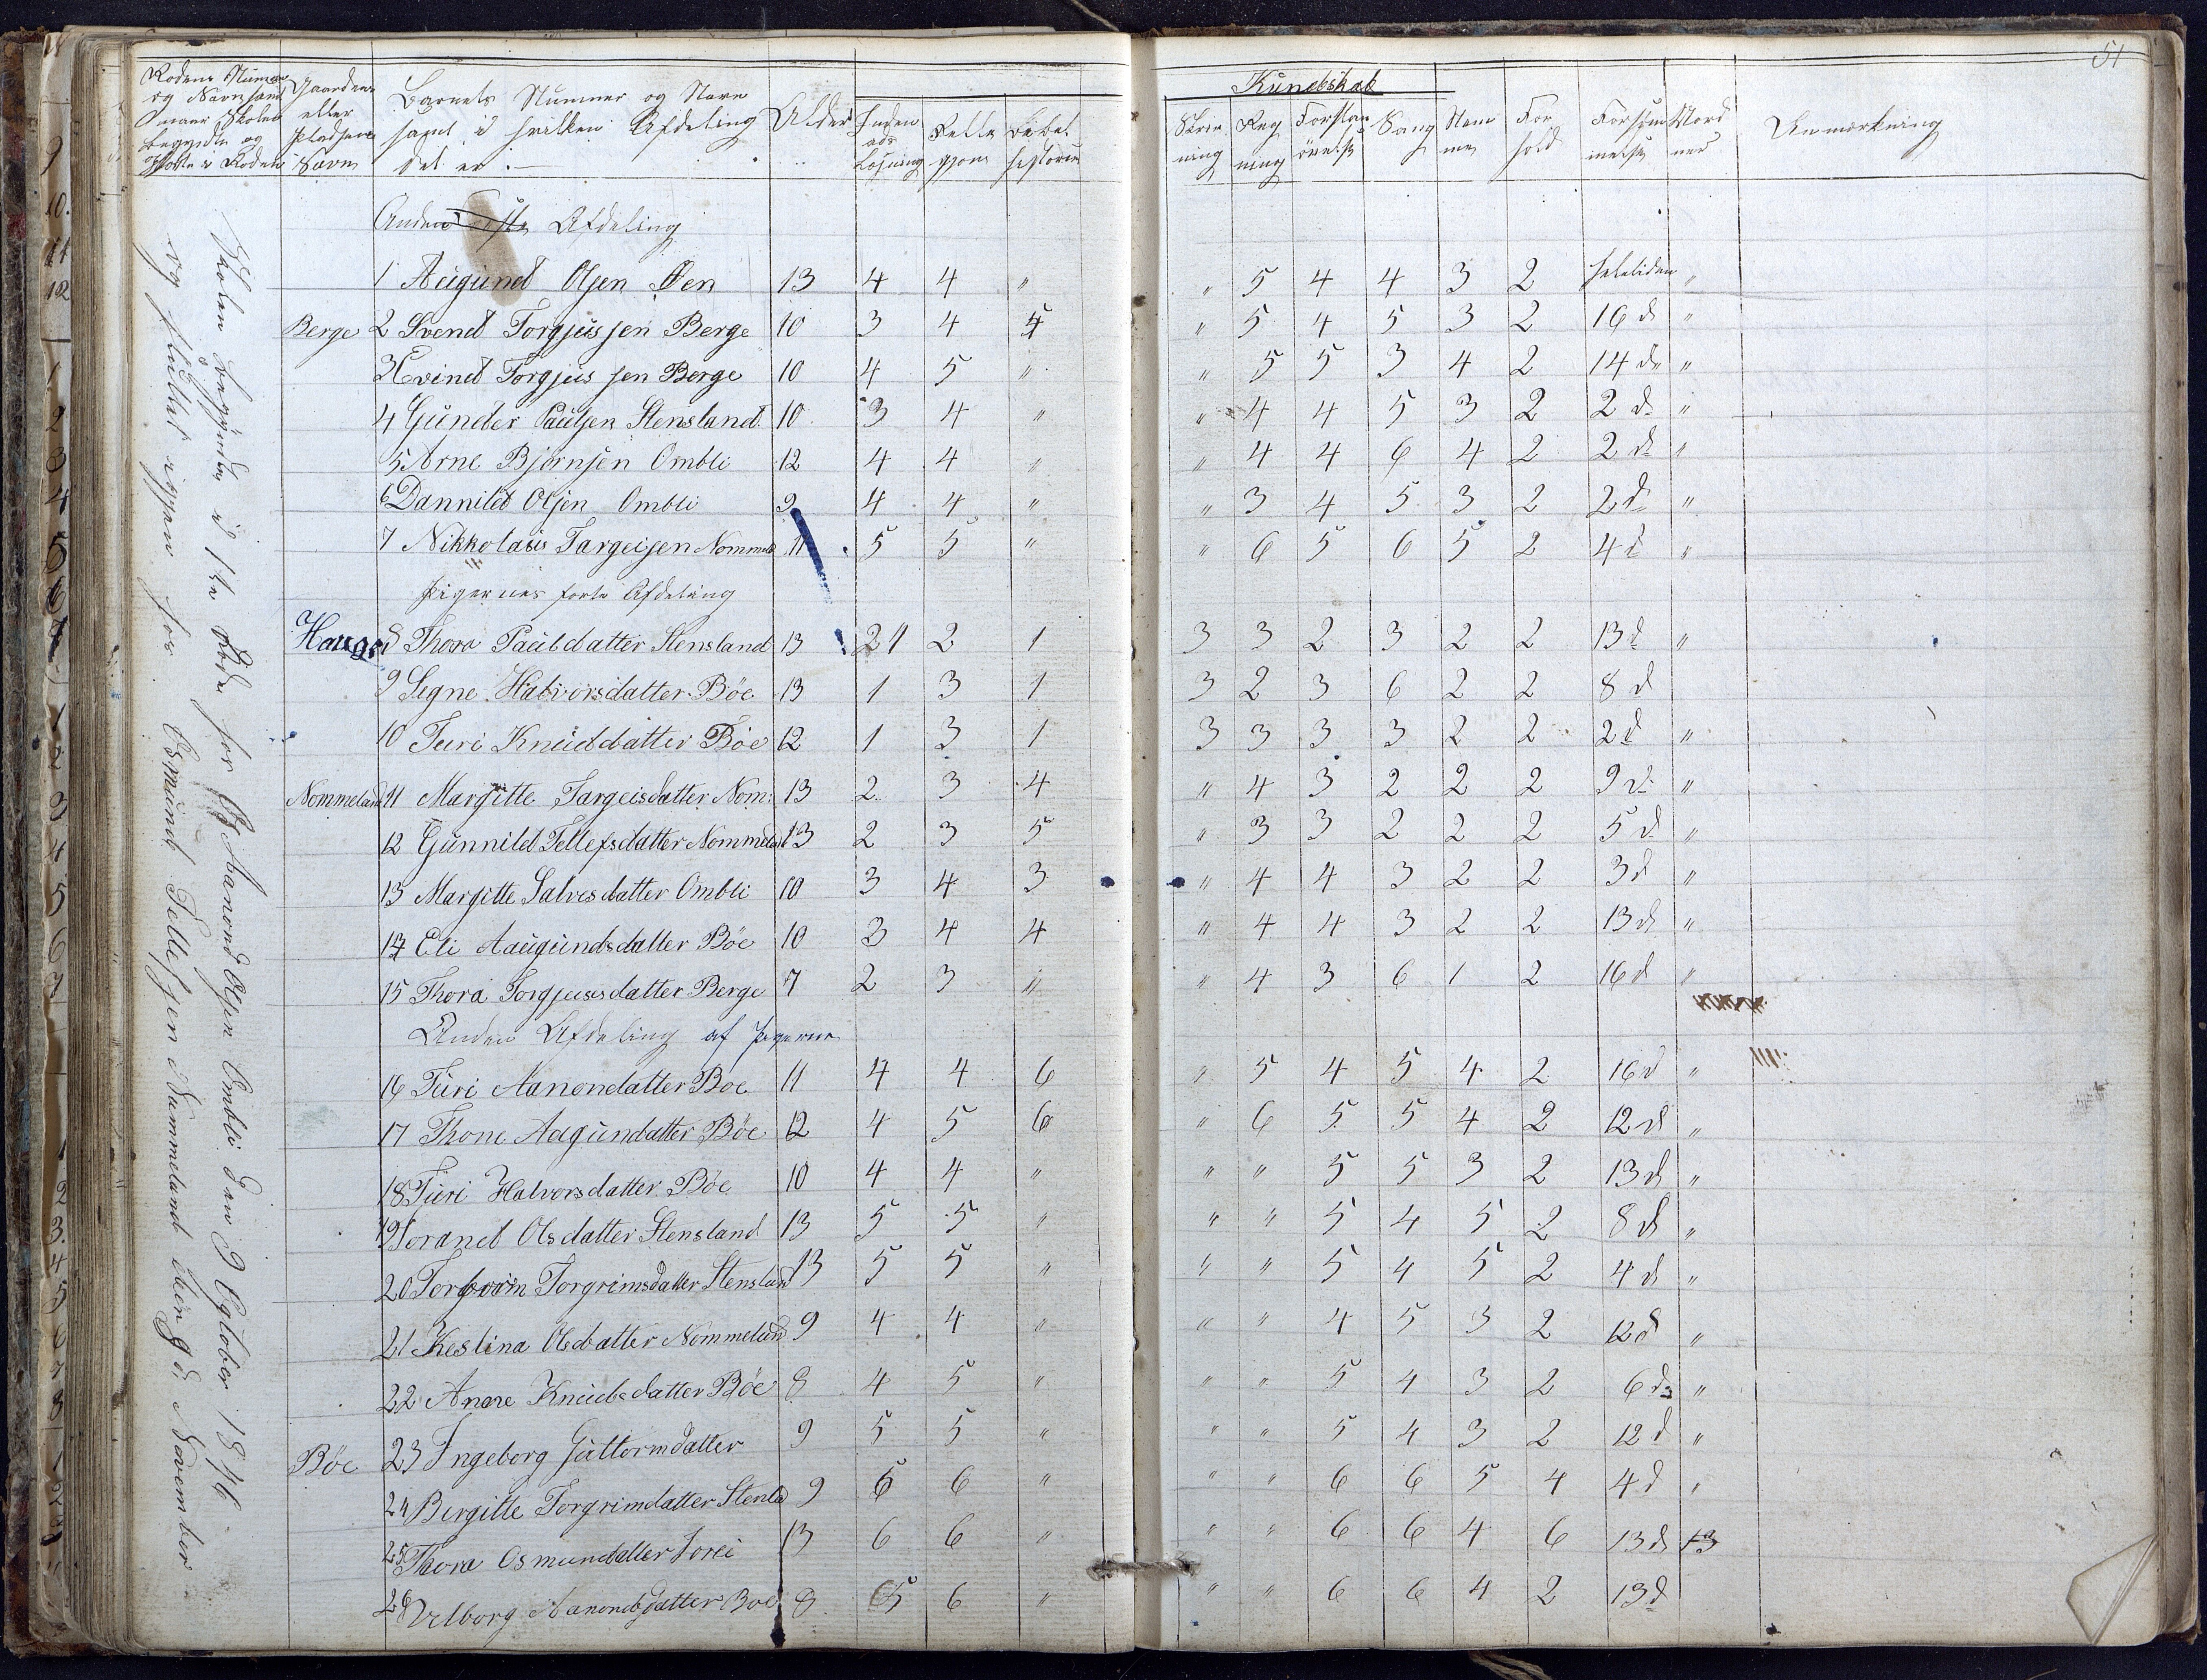 51
Rodens Nummer og Navn samt naar Skolen begyndte og sluttes i Roden
Gaardens eller Pladsens Navn
Barnets Nummer og Navn samt i hvilken Afdeling det er .—
Alder
Inden ads Læsning
Relli gion
Bibel historie
Kundskab
Skriv ning
Reg ning
Forstan øvelse
Sang
Nem me
For hold
Forsøm melse
Anmærkning
Skolen begyndte i 1ste Rode hos Aanond Olsen Ombli den 9 October 1846
og fluttet igjen hos Osmund Tellefsen Nummeland den 9 d. November
Anden Afdeling
1 Augund Olsen Øen 13 4 4 " " 5 4 4 3 2 heletiden "
Berge 2 Svend Torgjussen Berge 10 3 4 4 " 5 4 5 3 2 16 d "
3 Evind Torgjussen Berge 10 4 5 " " 5 5 3 4 2 14 d "
4 Gunder Paulsen Stensland 10 3 4 " " 4 4 5 3 2 2 d "
5 Arne Bjørnsen Ombli 12 4 4 " " 4 4 6 4 2 2 d "
6 Dannild Olsen Ombli 9 4 4 " " 3 4 5 3 2 2 d "
7 Nikkolaus Targeisen Nommel 11 5 5 " " 6 5 6 5 2 4 d "
Pigernes første Afdeling
Hauge 8 Thora Paulsdatter Stensland 13 2 1 2 1 3 3 2 3 2 2 13 d "
9 Segne Halvorsdatter Bøe 13 1 3 1 3 2 3 6 2 2 8 d
10 Turi Knudsdatter Bøe 12 1 3 1 3 3 3 3 2 2 2 d "
Nommeland 11 Margitte Targeisdatter Nom: 13 2 3 4 " 4 3 2 2 2 9 d "
12 Gunnild Tellefsdatter Nommeland 13 2 3 5 " 3 3 2 2 2 5 d "
13 Margitte Salvesdatter Ombli 10 3 4 3 " 4 4 3 2 2 3 d "
14 Eli Aaugundsdatter Bøe 10 3 4 4 " 4 4 3 2 2 13 d "
15 Thora Torgjusdatter Berge 7 2 3 " " 4 3 6 1 2 16 d "
Anden Afdeling af Pigerne
16 Turi Aanondatter Boe 11 4 4 6 " 5 4 5 4 2 16 d "
17 Thone Aagundatter Bøe 12 4 5 6 " 6 5 5 4 2 12 d "
18 Turi Halvorsdatter Bøe 10 4 4 " " " 5 5 3 2 13 d "
19 Toraned Olsdatter Stensland 13 5 5 " " " 5 4 5 2 8 d "
20 Torborn Torgrimsdatter Stensland 13 5 5 " " " 5 4 5 2 4 d "
21 Kestina Olsdatter Nommeland 9 4 4 " " " 4 5 3 2 12 d "
22 Anne Knudsdatter Bøe 8 4 5 " " " 5 4 3 2 6 d "
Bøe 23 Ingeborg Guttormdatter 9 5 5 " " " 5 4 3 2 12 d "
24 Birgitte Torgrimdatter Stensla 9 6 6 " " " 6 6 5 4 4 d "
25 Thora Osmundatter 13 6 6 " " " 6 6 4 6 13 d 13
26 Velborg Aanondsdatter Boe 8 5 6 " " " 6 6 4 2 13 d